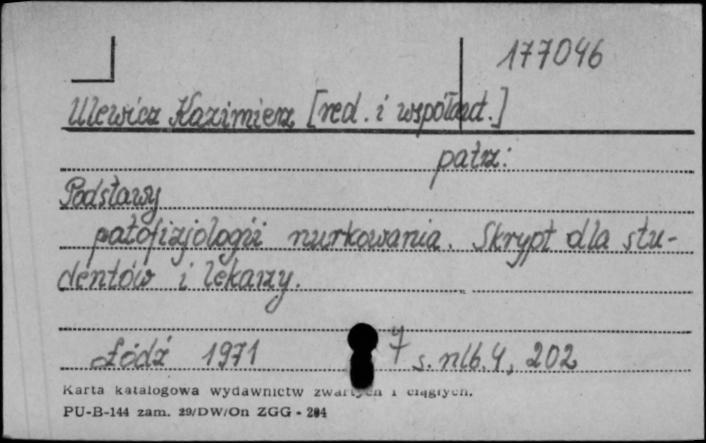 177046
Ulewicz Kazimierz [red. i współaut.]
patrz:
Podstawy
patofizjologii nurkowania. Skrypt dla stu-
dentów i lekarzy.
Łódź 1971 4 s. nlb. 4, 202
Karta katalogowa wydawnictw zwartych i ciągłych.
PU-B-144 zam. 29/DW/On ZGG - 284